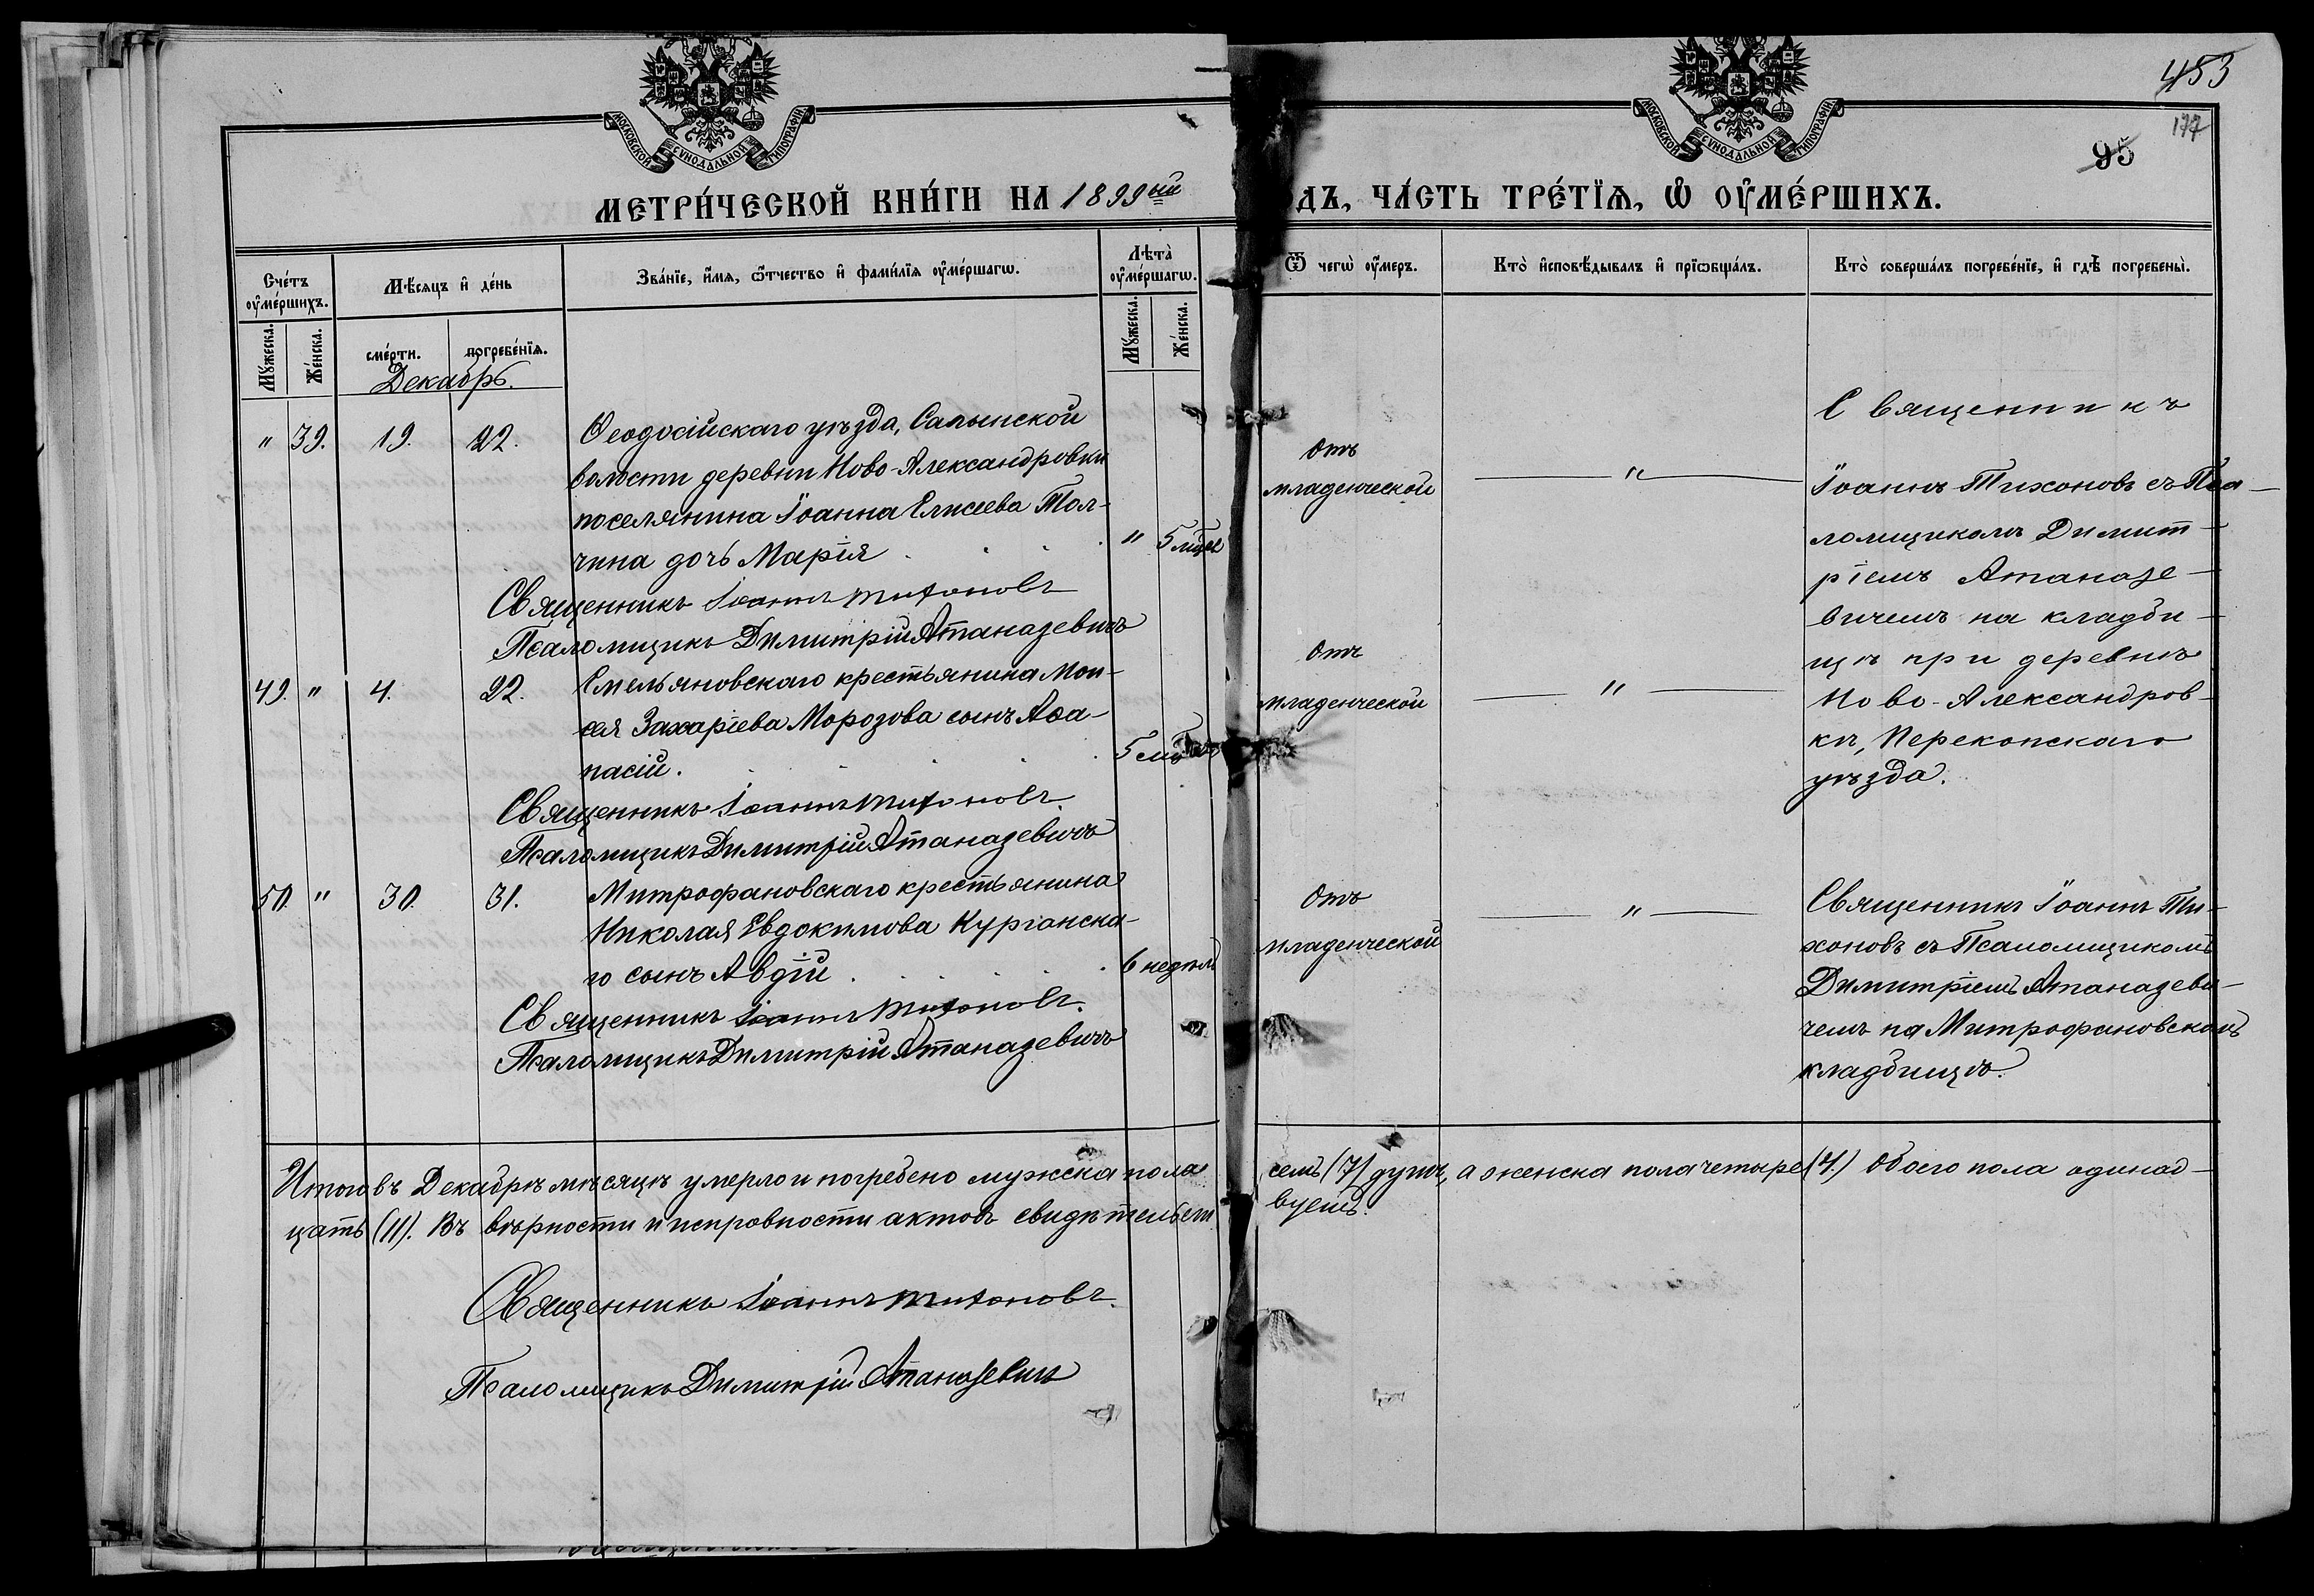 453
177
95
МОСКОВСКОЙ СѴНОДАЛЬНОЙ ТИПОГРАФІИ
МОСКОВСКОЙ СѴНОДАЛЬНОЙ ТИПОГРАФІИ
МЕТРИ́ЧЕСКОЙ КНИ́ГИ НА 1899ый
ОДЪ, ЧА́СТЬ ТРЕ́ТЇѦ, Ѡ҆ ОУ҆МЕ́РШИХЪ.
Сче́тъ оу҆ме́ршихъ.
Мꙋ́жеска.
Же́нска.
Мѣ́сѧцъ и҆ де́нь
сме́рти.
погребе́нїѧ.
Зва́нїе, и҆́мѧ, ѻ҆́тчество и҆ фами́лїѧ оу҆ме́ршагѡ.
Лѣта̀ оу҆ме́ршагѡ.
Мꙋ́жеска.
Же́нска.
Ѿ чегѡ̀ оу҆́меръ.
Кто̀ и҆сповѣ́дывалъ и҆ прїѡбща́лъ.
Кто̀ соверша́лъ погребе́нїе, и҆ гдѣ̀ погребены̀.
Декабрь.
" 39. 19. 22.
Ѳеодосійскаго уѣзда, Салынской
волости деревни Ново-Александровки
поселянина Іоанна Елисеева Тол-
чина дочь Марія . . . " 5 мѣс
Священникъ Іоаннъ Тихоновъ
Псаломщикъ Димитрій Атаназевичъ
Отъ
младенческой
"
Священникъ
Іоаннъ Тихоновъ съ Пса-
ломщикомъ Димит-
ріемъ Атаназе-
вичемъ на кладби-
щѣ при деревнѣ
Ново-Александров-
кѣ, Перекопскаго
уѣзда.
49. " 4. 22.
Емельяновскаго крестьянина Мои-
сея Захаріева Морозова сынъ Аѳа-
насій. . . . . 5
Священникъ Іоаннъ Тихоновъ.
Псаломщикъ Димитрій Атаназевичъ
Отъ
младенческой
"
50. " 30. 31.
Митрофановскаго крестьянина
Николая Евдокимова Курганска-
го сынъ Авдій . . . . 6 недѣль
Священникъ Іоаннъ Тихоновъ.
Псаломщикъ Димитрій Атаназевичъ
Отъ
младенческой
"
Священникъ Іоаннъ Ти-
хоновъ съ Псаломщикомъ
Димитріемъ Атаназеви-
чемъ на Митрофановскомъ
кладбищѣ.
Итого въ Декабрѣ мѣсяцѣ умерло и погребено мужска пола семь (7) душъ, а женска пола четыре (4.) Обоего пола одинад-
цать (11). Въ вѣрности и исправности актовъ свидѣтельст
вуемъ.
Священникъ Іоаннъ Тихоновъ.
Псаломщикъ Димитрій Атаназевичъ